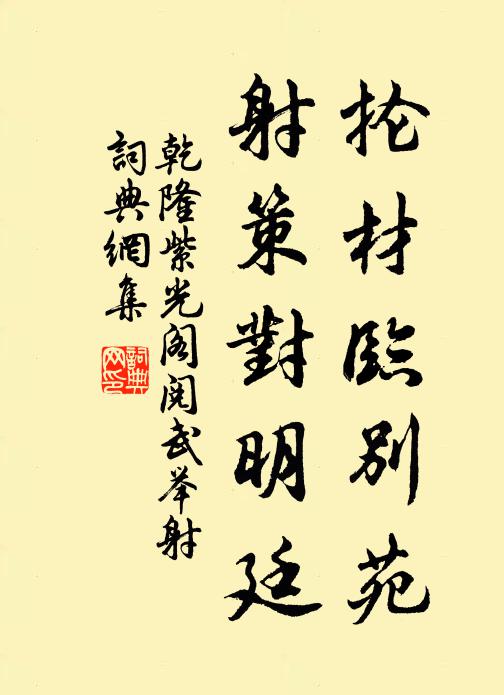 抡材臨別苑
射策對明廷
乾隆紫光阁阅武举射
詞典網集
詞典
网印